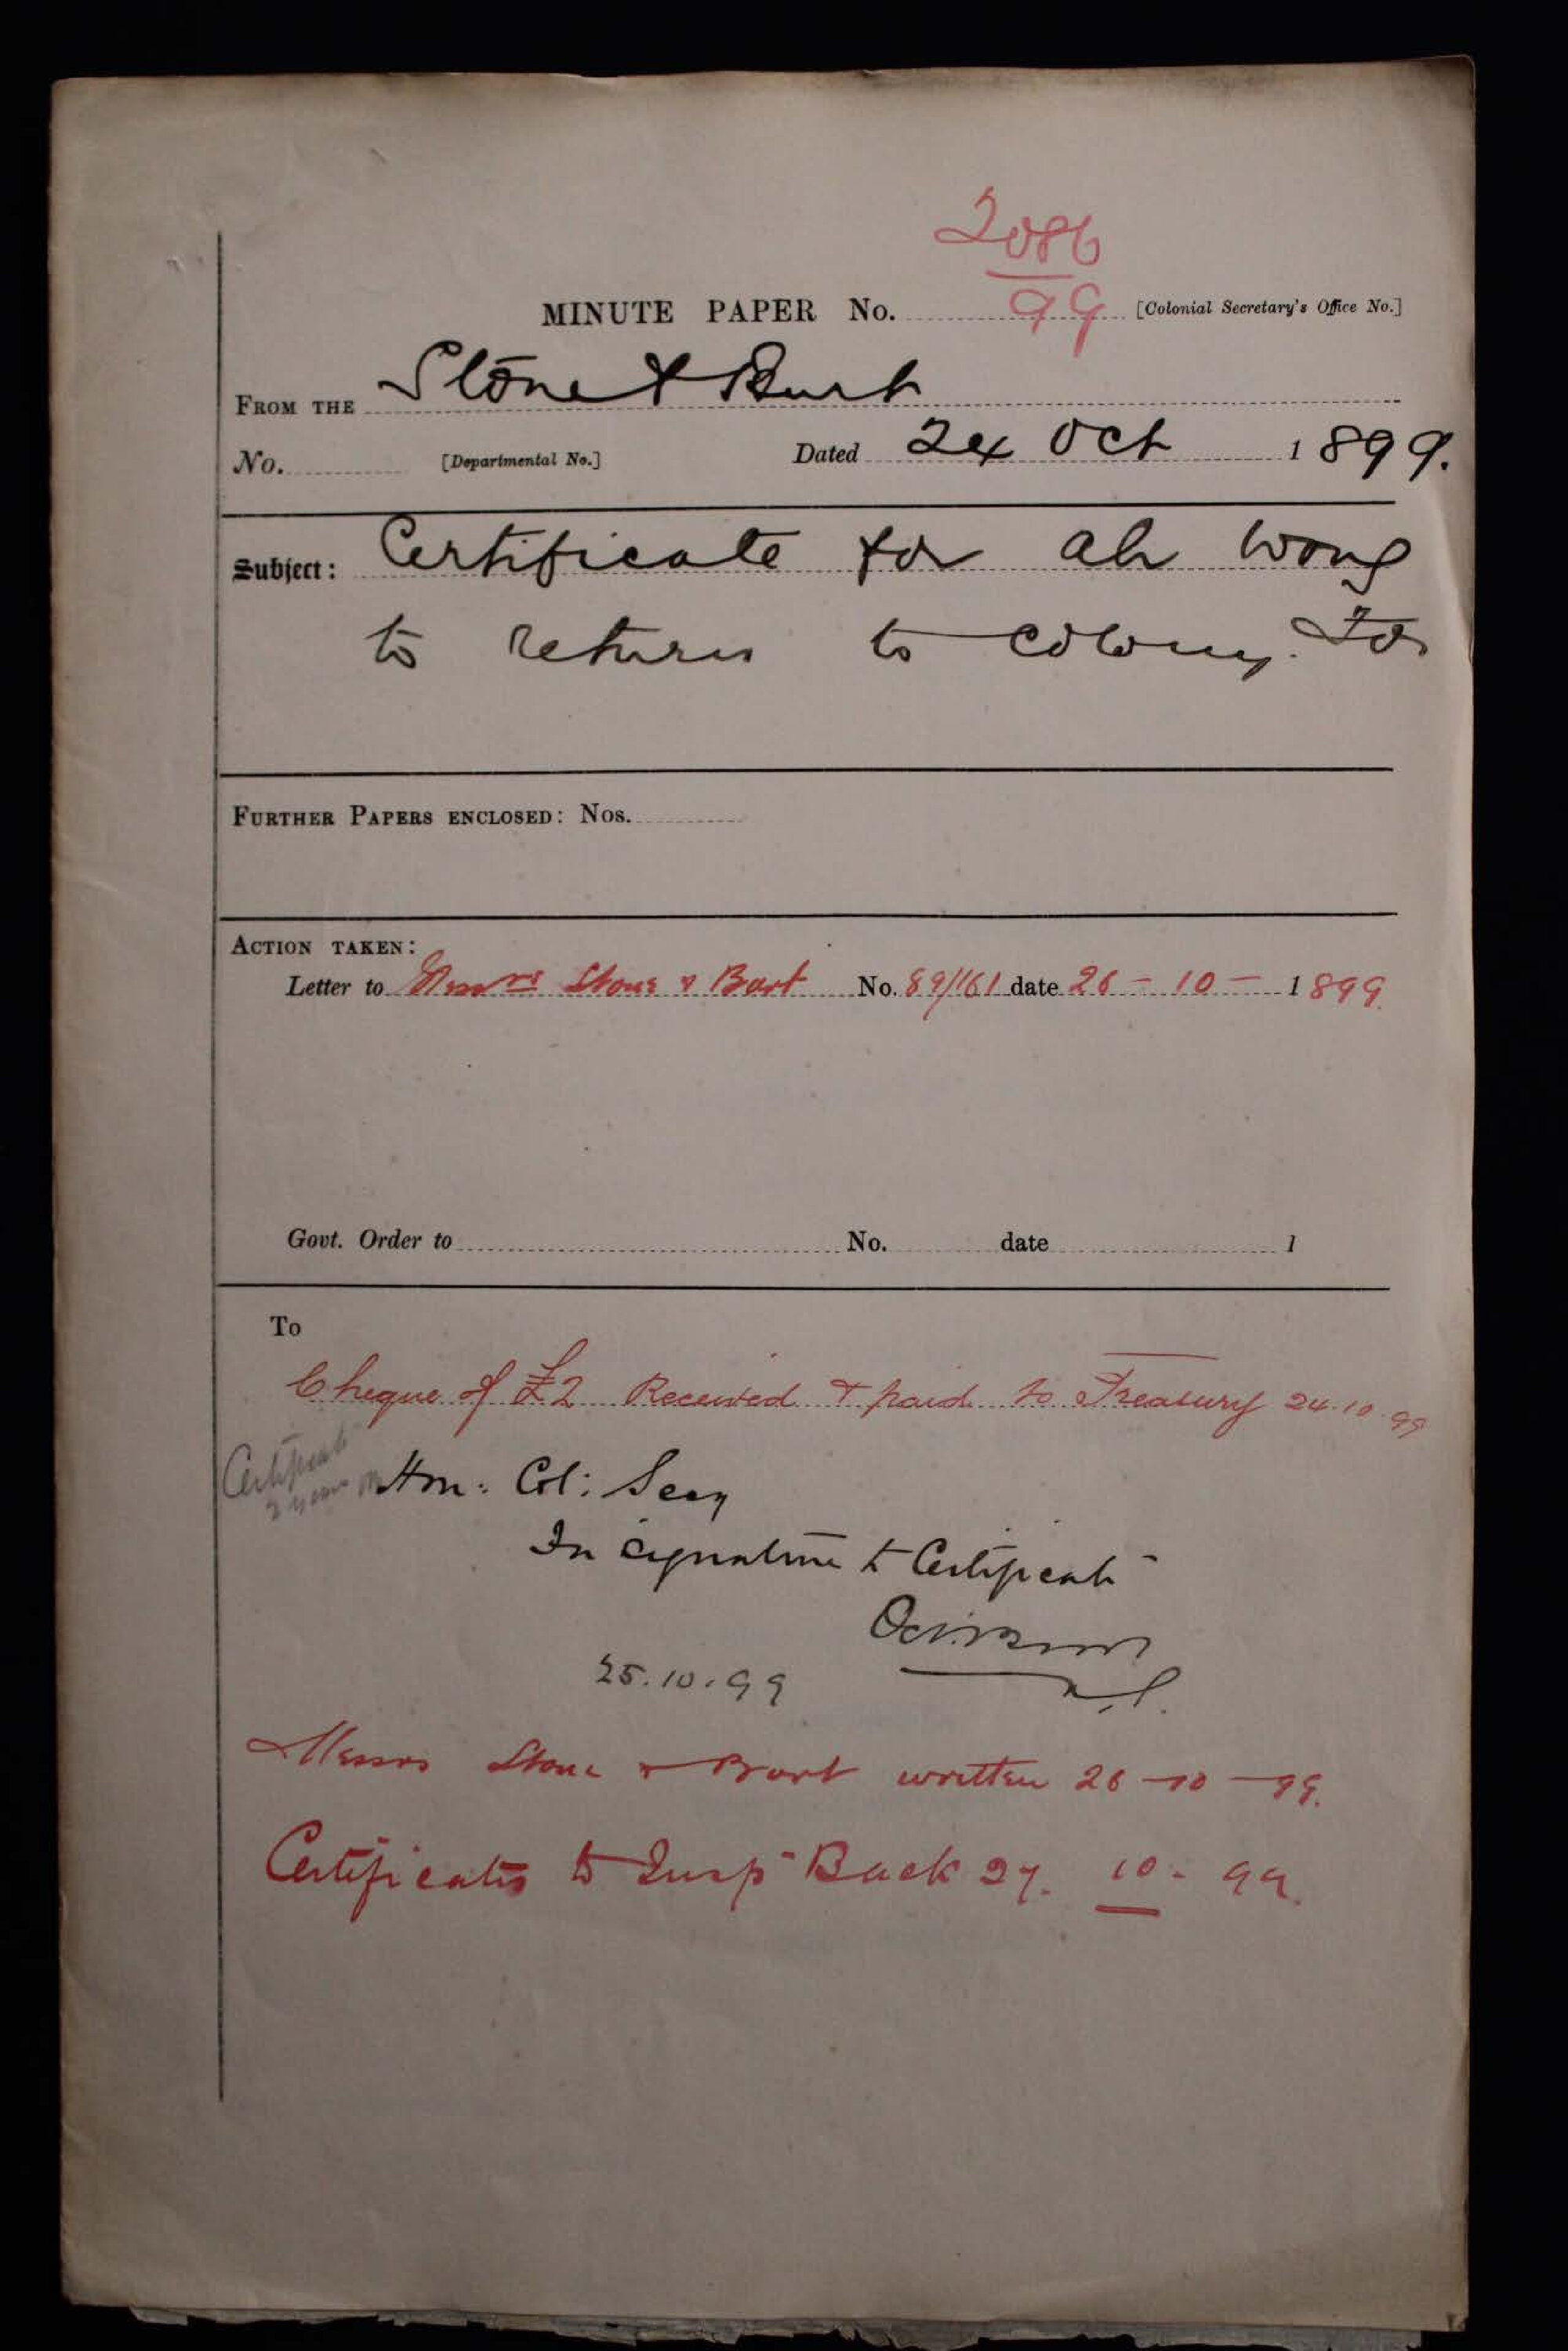 2086
99
MINUTE PAPER No. [Colonial Secretary's Office No.]
FROM THE Stone & Burt
No. [Departmental No.] Dated 24 Oct 1899.
Subject: Certificate for Ah Wong
to return to Colony. For
FURTHER PAPERS ENCLOSED: Nos.
ACTION TAKEN:
Letter to Messrs Stone & Burt No. 89/161 date 26 - 10 - 1899.
Govt. Order to No. date 1
To
Cheque of £2 Received & paid to Treasury 24.10.99
Certificate
2 years
Hon: Col: Secy
For signature to Certificate
25.10.99
Messrs Stone & Burt written 26-10-99.
Certificates to Insp Back 27. 10. 99.